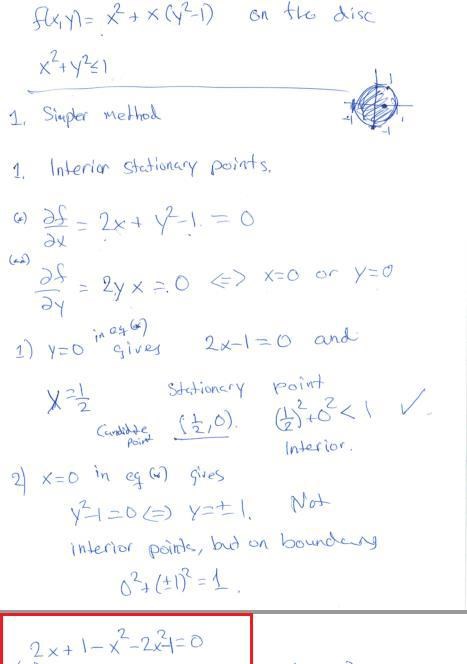 f(x,y) = x² + x(y²-1) on the disc
x²+y²≤1
1. Simpler method
1. Interior stationary points.
(*) ∂f/∂x = 2x + y²-1. = 0
(**) ∂f/∂y = 2yx = 0 <=> x=0 or y=0
1) y=0 in eq(*) gives 2x-1=0 and
x=1/2 stationary point
Candidate point (1/2,0). (1/2)²+0²<1 ✓.
Interior.
2) x=0 in eq(*) gives
y²-1=0 <=> y=±1. Not
interior points, but on boundary
0²+(±1)²=1.